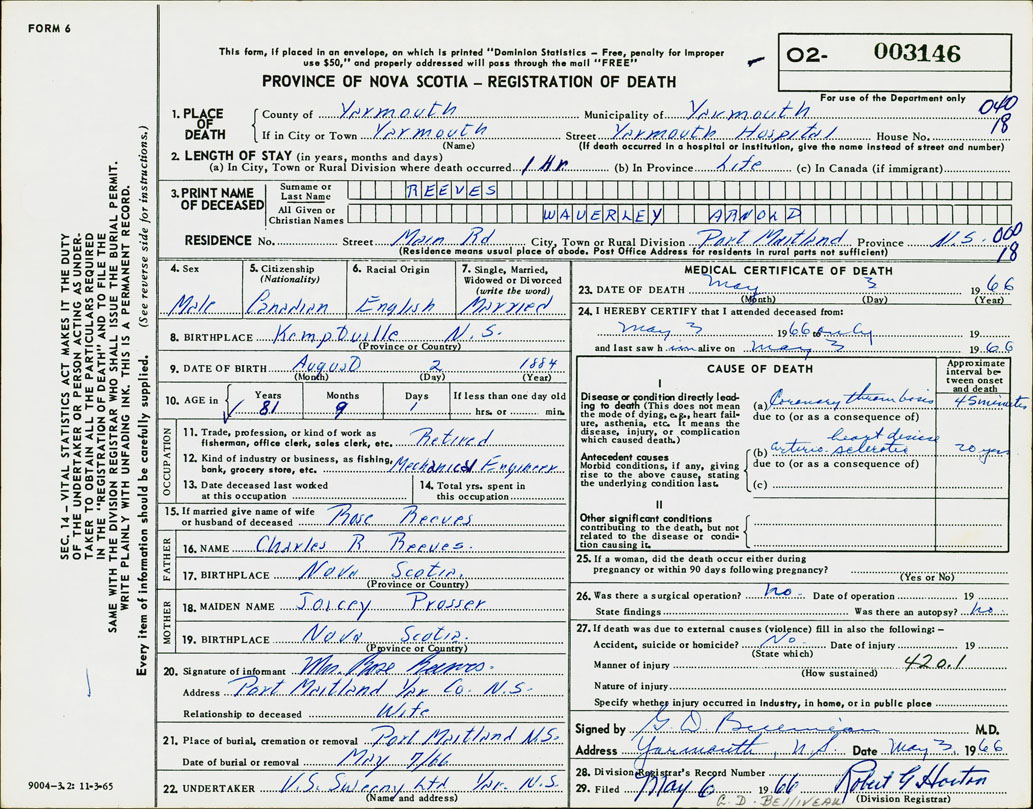 FORM 6
This form, if placed in an envelope, on which is printed "Dominion Statistics – Free, penalty for improper
use $50," and properly addressed will pass through the mail "FREE"
PROVINCE OF NOVA SCOTIA – REGISTRATION OF DEATH
O2- 003146
For use of the Department only
040
18
1. PLACE OF DEATH
County of Yarmouth Municipality of Yarmouth
If in City or Town Yarmouth Street Yarmouth Hospital House No.
(Name) (If death occurred in a hospital or institution, give the name instead of street and number)
2. LENGTH OF STAY (in years, months and days)
(a) In City, Town or Rural Division where death occurred 1 Hr (b) In Province Life (c) In Canada (if immigrant)
3. PRINT NAME OF DECEASED
Surname or Last Name REEVES
All Given or Christian Names WAVERLEY ARNOLD
RESIDENCE No. Street Main Rd City, Town or Rural Division Port Maitland Province N.S.
(Residence means usual place of abode. Post Office Address for residents in rural parts not sufficient)
060
18
4. Sex Male
5. Citizenship (Nationality) Canadian
6. Racial Origin English
7. Single, Married, Widowed or Divorced (write the word) Married
8. BIRTHPLACE Kemptville N.S.
(Province or Country)
9. DATE OF BIRTH August 2 1884
(Month) (Day) (Year)
10. AGE in Years Months Days If less than one day old
81 9 1 hrs. or min.
OCCUPATION
11. Trade, profession, or kind of work as
fisherman, office clerk, sales clerk, etc. Retired
12. Kind of industry or business, as fishing,
bank, grocery store, etc. Mechanical Engineer
13. Date deceased last worked
at this occupation
14. Total yrs. spent in
this occupation
15. If married give name of wife
or husband of deceased Rose Reeves
FATHER
16. NAME Charles R Reeves.
17. BIRTHPLACE Nova Scotia.
(Province or Country)
MOTHER
18. MAIDEN NAME Joicey Prosser
19. BIRTHPLACE Nova Scotia.
(Province or Country)
20. Signature of informant Mrs. Rose Reeves.
Address Port Maitland Yar Co. N.S.
Relationship to deceased Wife
21. Place of burial, cremation or removal Port Maitland N.S.
Date of burial or removal May 7/66
22. UNDERTAKER V.S. Sweeny Ltd Yar. N.S.
(Name and address)
MEDICAL CERTIFICATE OF DEATH
23. DATE OF DEATH May 3 1966
(Month) (Day) (Year)
24. I HEREBY CERTIFY that I attended deceased from:
May 3 1966 to only 19
and last saw him alive on May 3 1966
CAUSE OF DEATH
Approximate interval between onset and death
I
Disease or condition directly leading to death (This does not mean
the mode of dying, e.g., heart failure, asthenia, etc. It means the
disease, injury, or complication
which caused death.)
(a) Coronary thrombosis 45 minutes
due to (or as a consequence of)
Antecedent causes
Morbid conditions, if any, giving
rise to the above cause, stating
the underlying condition last.
heart disease
(b) arterio-sclerotic 20 yrs
due to (or as a consequence of)
(c)
II
Other significant conditions
contributing to the death, but not
related to the disease or condition causing it.
25. If a woman, did the death occur either during
pregnancy or within 90 days following pregnancy?
(Yes or No)
26. Was there a surgical operation? no Date of operation 19
State findings Was there an autopsy? no
27. If death was due to external causes (violence) fill in also the following: –
Accident, suicide or homicide? No Date of injury 19
(State which)
Manner of injury 420.1
(How sustained)
Nature of injury
Specify whether injury occurred in industry, in home, or in public place
Signed by G. D. Belliveau M.D.
Address Yarmouth, N.S. Date May 3, 1966
28. Division Registrar's Record Number
29. Filed May 6 1966 Robert G Horton
(Division Registrar)
G. D. BELLIVEAU
SEC. 14 – VITAL STATISTICS ACT MAKES IT THE DUTY
OF THE UNDERTAKER OR PERSON ACTING AS UNDERTAKER TO OBTAIN ALL THE PARTICULARS REQUIRED
IN THE "REGISTRATION OF DEATH" AND TO FILE THE
SAME WITH THE DIVISION REGISTRAR WHO SHALL ISSUE THE BURIAL PERMIT.
WRITE PLAINLY WITH UNFADING INK. THIS IS A PERMANENT RECORD.
Every item of information should be carefully supplied. (See reverse side for instructions.)
9004-3.2: 11-3-65